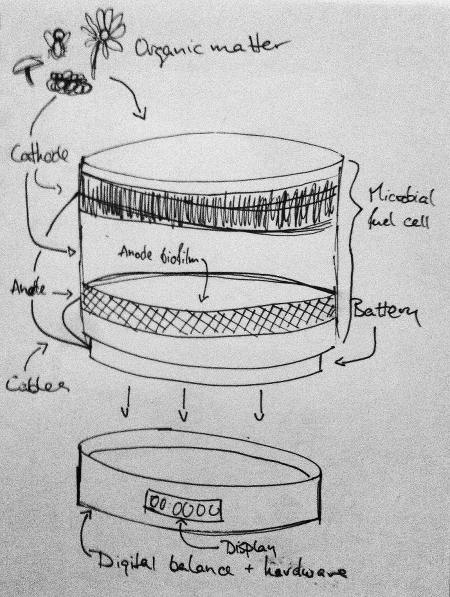 Organic matter
Cathode
Microbial
fuel cell
Anode biofilm
Anode
Battery
Cables
00 0000
Display
Digital balance + hardware